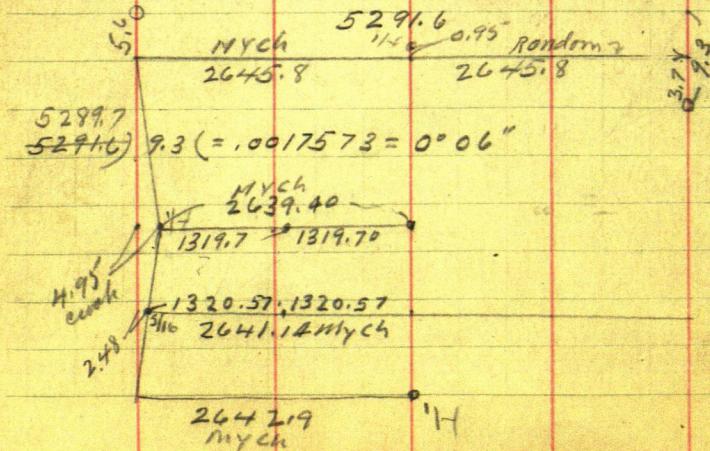 5291.6
5.6 1/4 0.95
Mych Random
2645.8 2645.8
3.7 9.3
5289.7
5291.6) 9.3 (= .0017573 = 0° 06"
Mych
1/4 2639.40
1319.7 1319.70
4.95
1320.57 1320.57
5/16 2641.14 Mych
2.48
2642.9 1/4
Mych